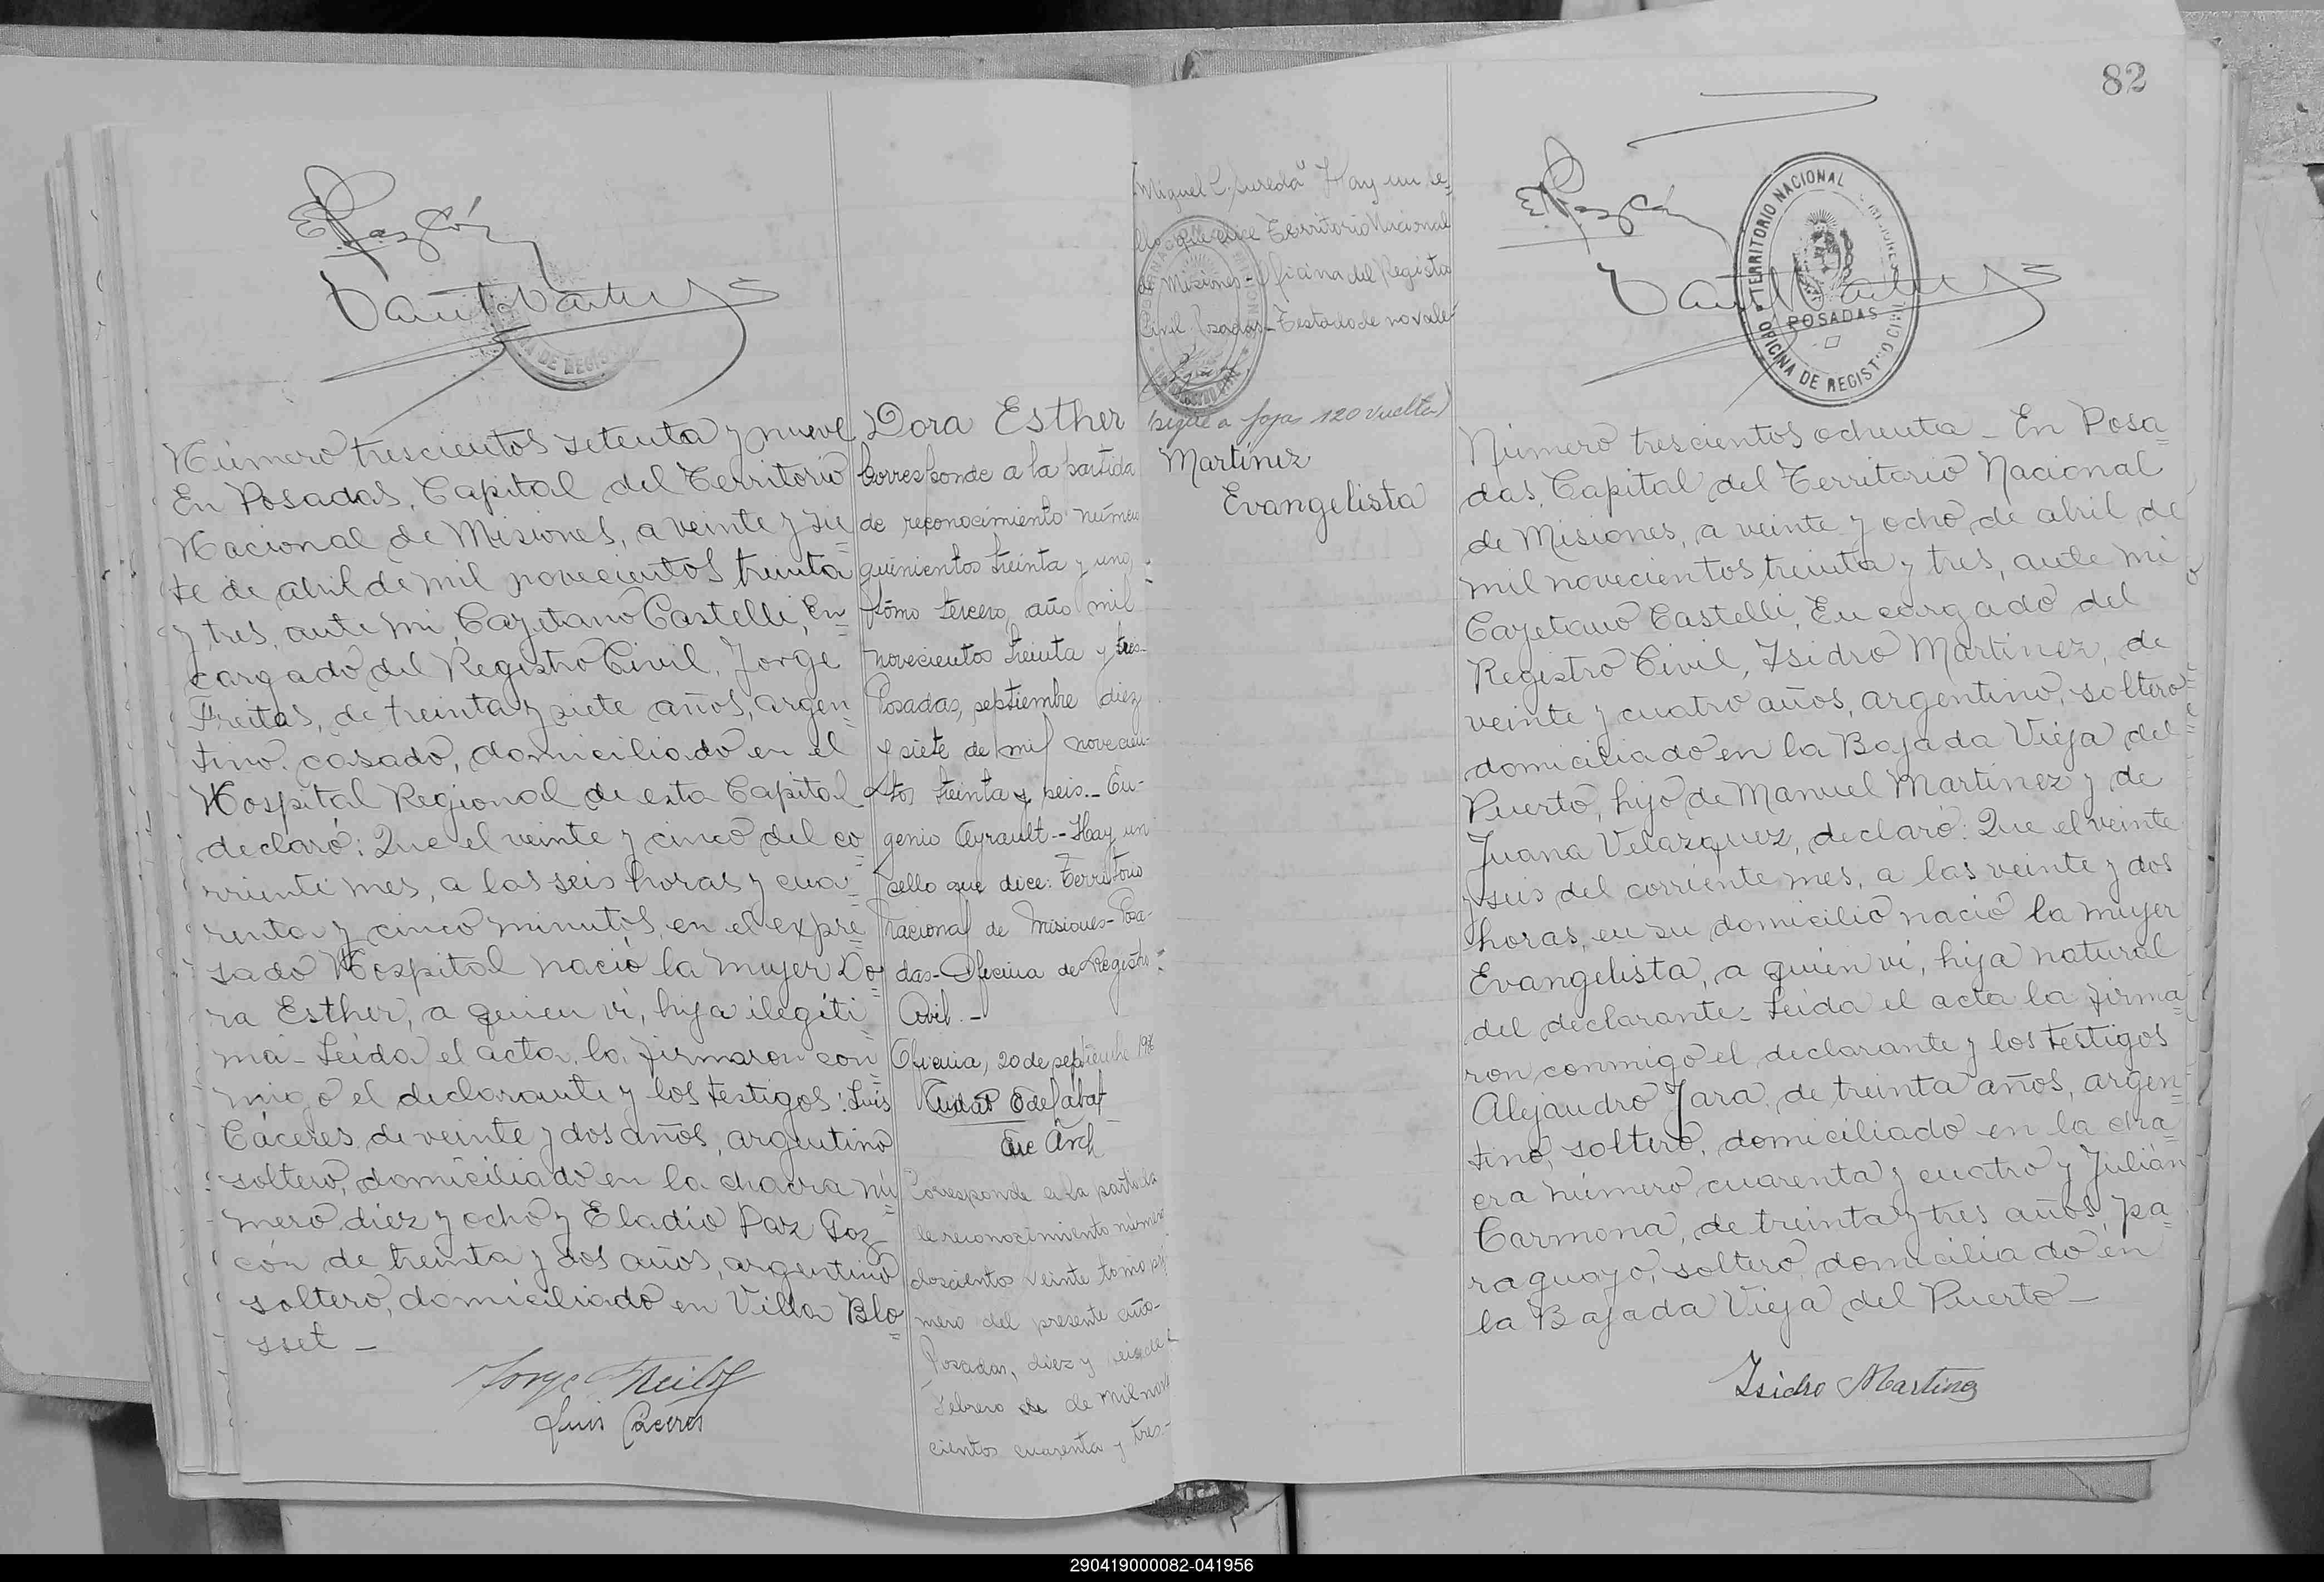 Número trescientos setenta y nueve
En Posadas, Capital del Territorio
Nacional de Misiones, a veinte y sie=
te de abril de mil novecientos treinta
y tres, ante mi, Cayetano Castelli, En=
cargado del Registro Civil, Jorge
Freitas, de treinta y siete años, argen=
tino, casado, domiciliado en el
Hospital Regional de esta Capital
declaró: Que el veinte y cinco del co=
rriente mes, a las seis horas y cua=
renta y cinco minutos, en el expre=
sado Hospital nació la mujer Do=
ra Esther, a quien vi, hija ilegíti=
ma - Leida el acta, la firmaron con=
migo el declarante y los testigos: Luis
Cáceres, de veinte y dos años, argentino
soltero, domiciliado en la chacra nú=
mero diez y ocho y Eladio Paz Goz=
cón de treinta y dos años, argentino
soltero, domiciliado en Villa Blo=
sset -
Luis Cáceres
Dora Esther
Corresponde a la partida
de reconocimiento número
quinientos treinta y uno,
tomo tercero, año mil
novecientos treinta y tres.-
Posadas, septiembre diez
y siete de mil novecien-
tos treinta y seis.- Eu-
genio Ayrault -- Hay un
sello que dice: Territorio
nacional de Misiones- Posa-
das- Oficina de Registro
Civil. -
Oficina, 20 de septiembre
Corresponde a la partida
de reconocimiento número
doscientos veinte tomo pri
mero del presente año-
Posadas, diez y seis de
Febrero de mil nove
cientos cuarenta y tres.-
Miguel Hay un se=
llo que dice Territorio Nacional
de Misiones - Oficina del Registro
Civil Posadas - Testado de no vale-
(sigue a fojas 120 vuelta)
Martínez
Evangelista
82
TERRITORIO NACIONAL
POSADAS
OFICINA DE REGISTRO CIVIL
Número trescientos ochenta - En Posa=
das, Capital del Territorio Nacional
de Misiones, a veinte y ocho de abril de
mil novecientos treinta y tres, ante mi
Cayetano Castelli, Encargado del
Registro Civil, Isidro Martínez, de
veinte y cuatro años, argentino, soltero
domiciliado en la Bajada Vieja del
Puerto, hijo de Manuel Martínez y de
Juana Velazquez, declaró: Que el veinte
y seis del corriente mes, a las veinte y dos
horas, en su domicilio nació la mujer
Evangelista, a quien vi, hija natural
del declarante- Leida el acta la firma=
ron conmigo el declarante y los testigos
Alejandro Jara, de treinta años, argen=
tino, soltero, domiciliado en la cha=
cra número cuarenta y cuatro y Julián
Carmona, de treinta y tres años, pa=
raguayo, soltero, domiciliado en
la Bajada Vieja del Puerto -
Isidro Martínez
290419000082-041956